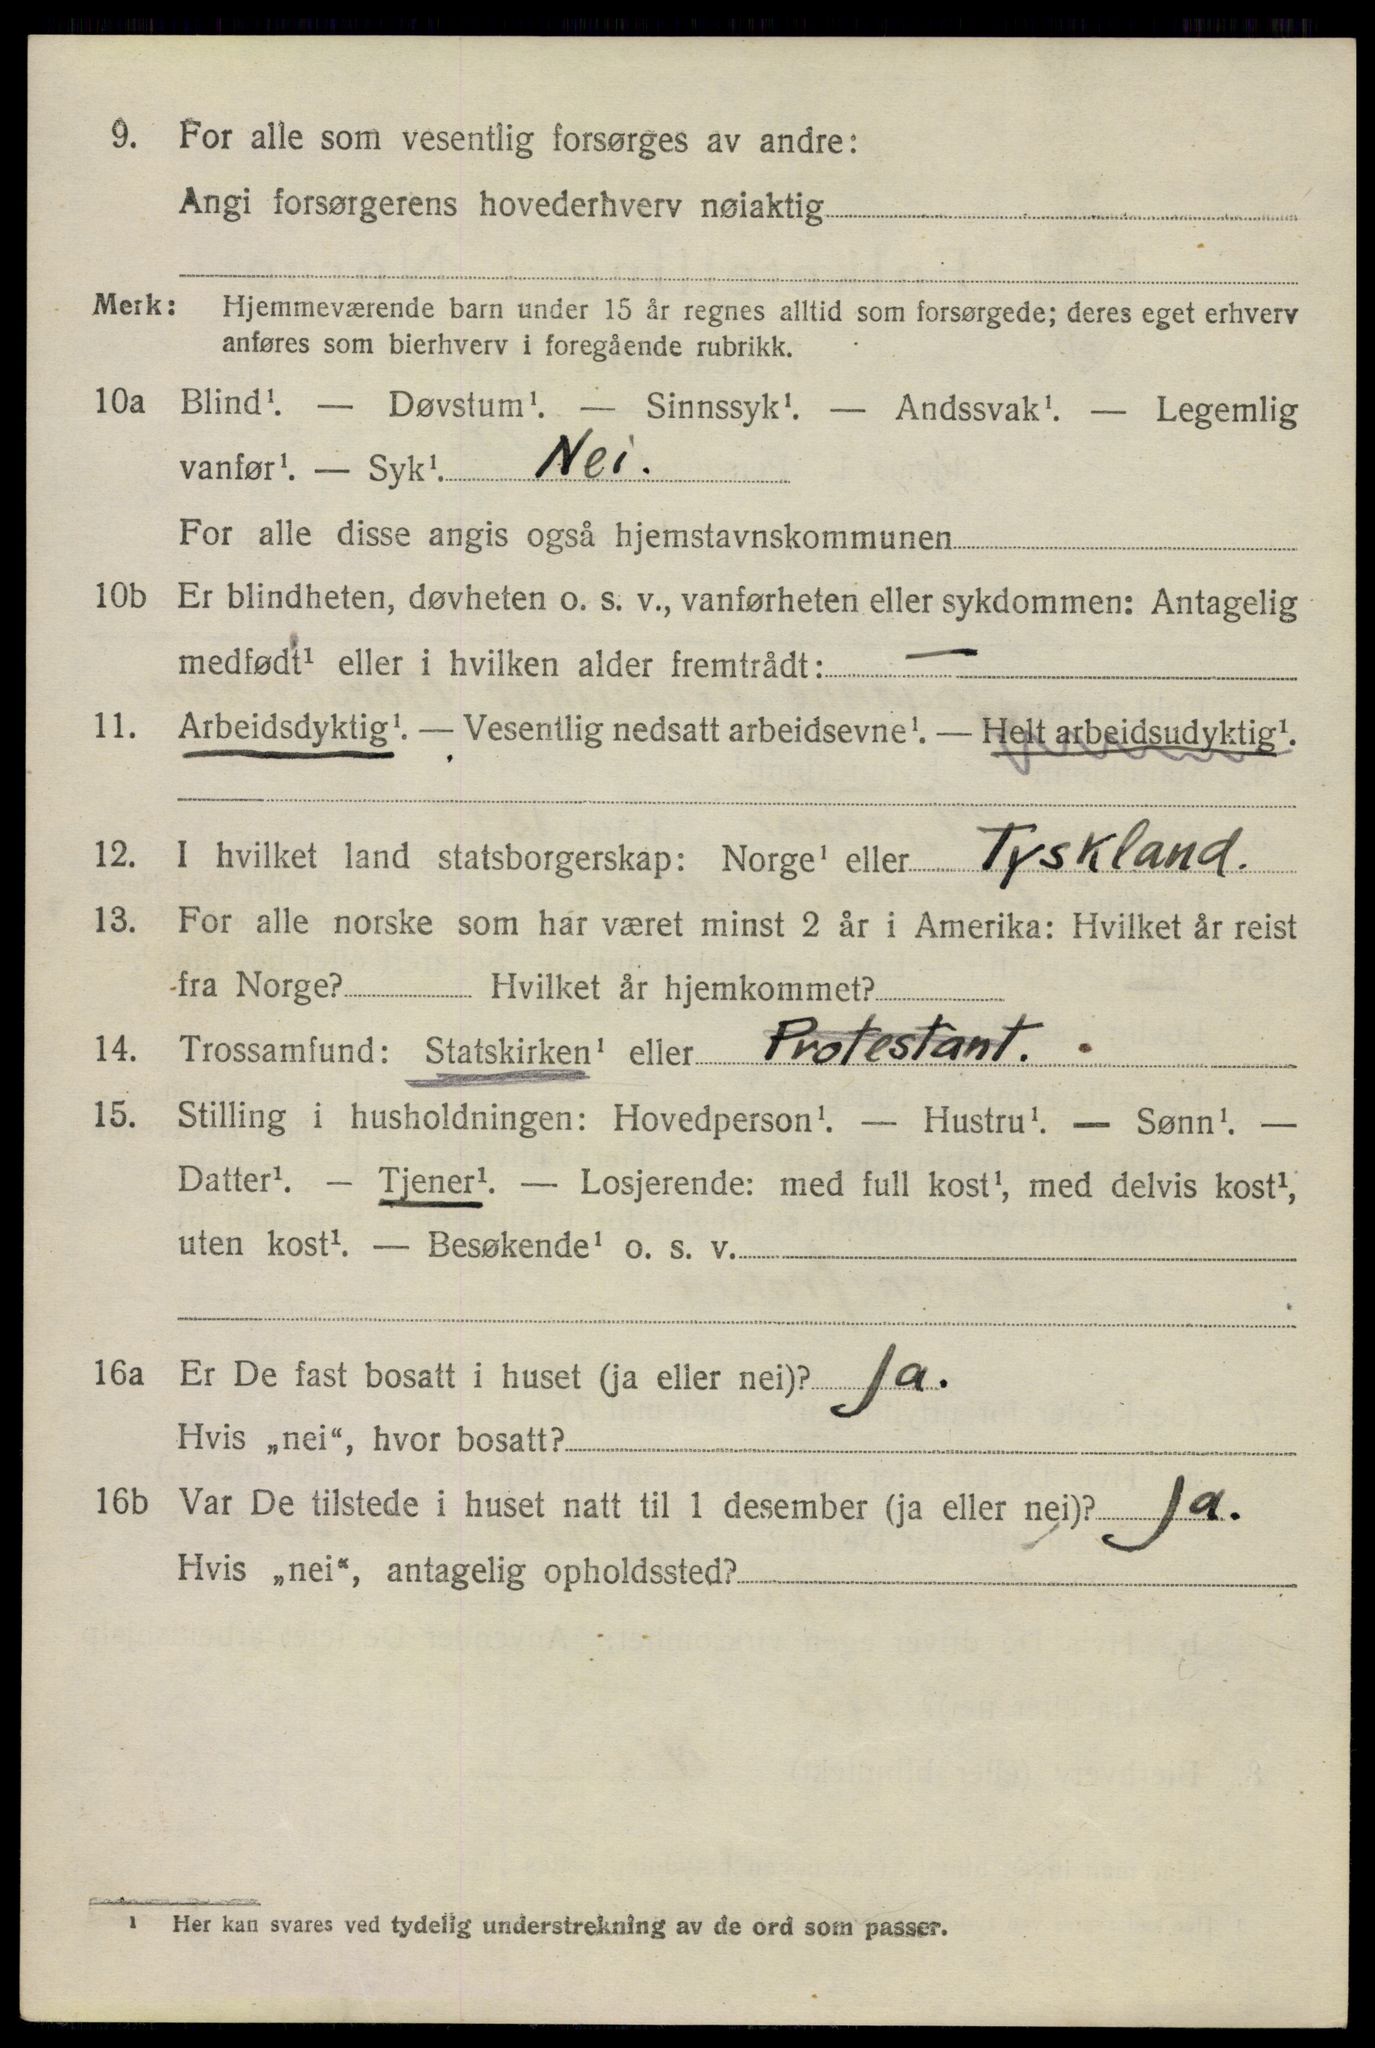 9. For alle som vesentlig forsørges av andre:
Angi forsørgerens hovederhverv nøiaktig
Merk: Hjemmeværende barn under 15 år regnes alltid som forsørgede; deres eget erhverv
anføres som bierhverv i foregående rubrikk.
10a Blind¹. — Døvstum¹. — Sinnssyk¹. — Andssvak¹. — Legemlig
vanfør¹. — Syk¹. Nei.
For alle disse angis også hjemstavnskommunen
10b Er blindheten, døvheten o. s. v., vanførheten eller sykdommen: Antagelig
medfødt¹ eller i hvilken alder fremtrådt: —
11. Arbeidsdyktig¹. — Vesentlig nedsatt arbeidsevne¹. — Helt arbeidsudyktig¹.
12. I hvilket land statsborgerskap: Norge¹ eller Tyskland.
13. For alle norske som har været minst 2 år i Amerika: Hvilket år reist
fra Norge? Hvilket år hjemkommet?
14. Trossamfund: Statskirken¹ eller Protestant.
15. Stilling i husholdningen: Hovedperson¹. — Hustru¹. — Sønn¹. —
Datter¹. — Tjener¹. — Losjerende: med full kost¹, med delvis kost¹,
uten kost¹. — Besøkende¹ o. s. v.
16a Er De fast bosatt i huset (ja eller nei)? Ja.
Hvis „nei“, hvor bosatt?
16b Var De tilstede i huset natt til 1 desember (ja eller nei)? Ja.
Hvis „nei“, antagelig opholdssted?
¹ Her kan svares ved tydelig understrekning av de ord som passer.